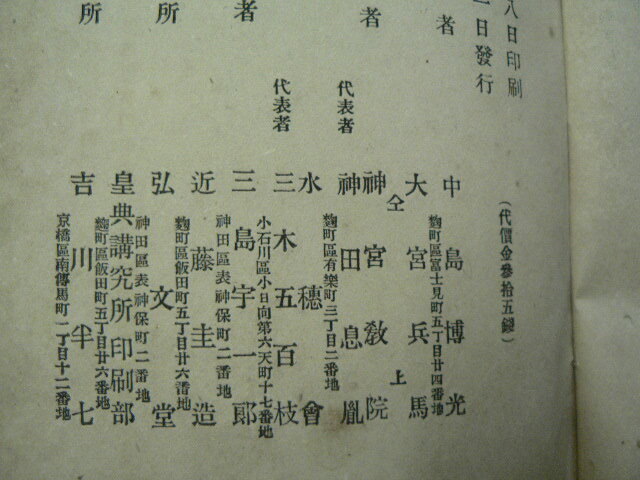 八日印刷
日發行
(代價金參拾五錢)
者
中島博光
麴町區富士見町五丁目廿四番地
大宮兵馬
仝 上
者
神宮敎院
代表者 神田息胤
麴町區有樂町三丁目二番地
水穗會
代表者 三木五百枝
小石川區小日向第六天町十七番地
者
三島宇一郎
神田區表神保町二番地
近藤圭造
麴町區飯田町五丁目廿六番地
所
弘文堂
神田區表神保町二番地
皇典講究所印刷部
麴町區飯田町五丁目廿六番地
所
吉川半七
京橋區南傳馬町一丁目十二番地